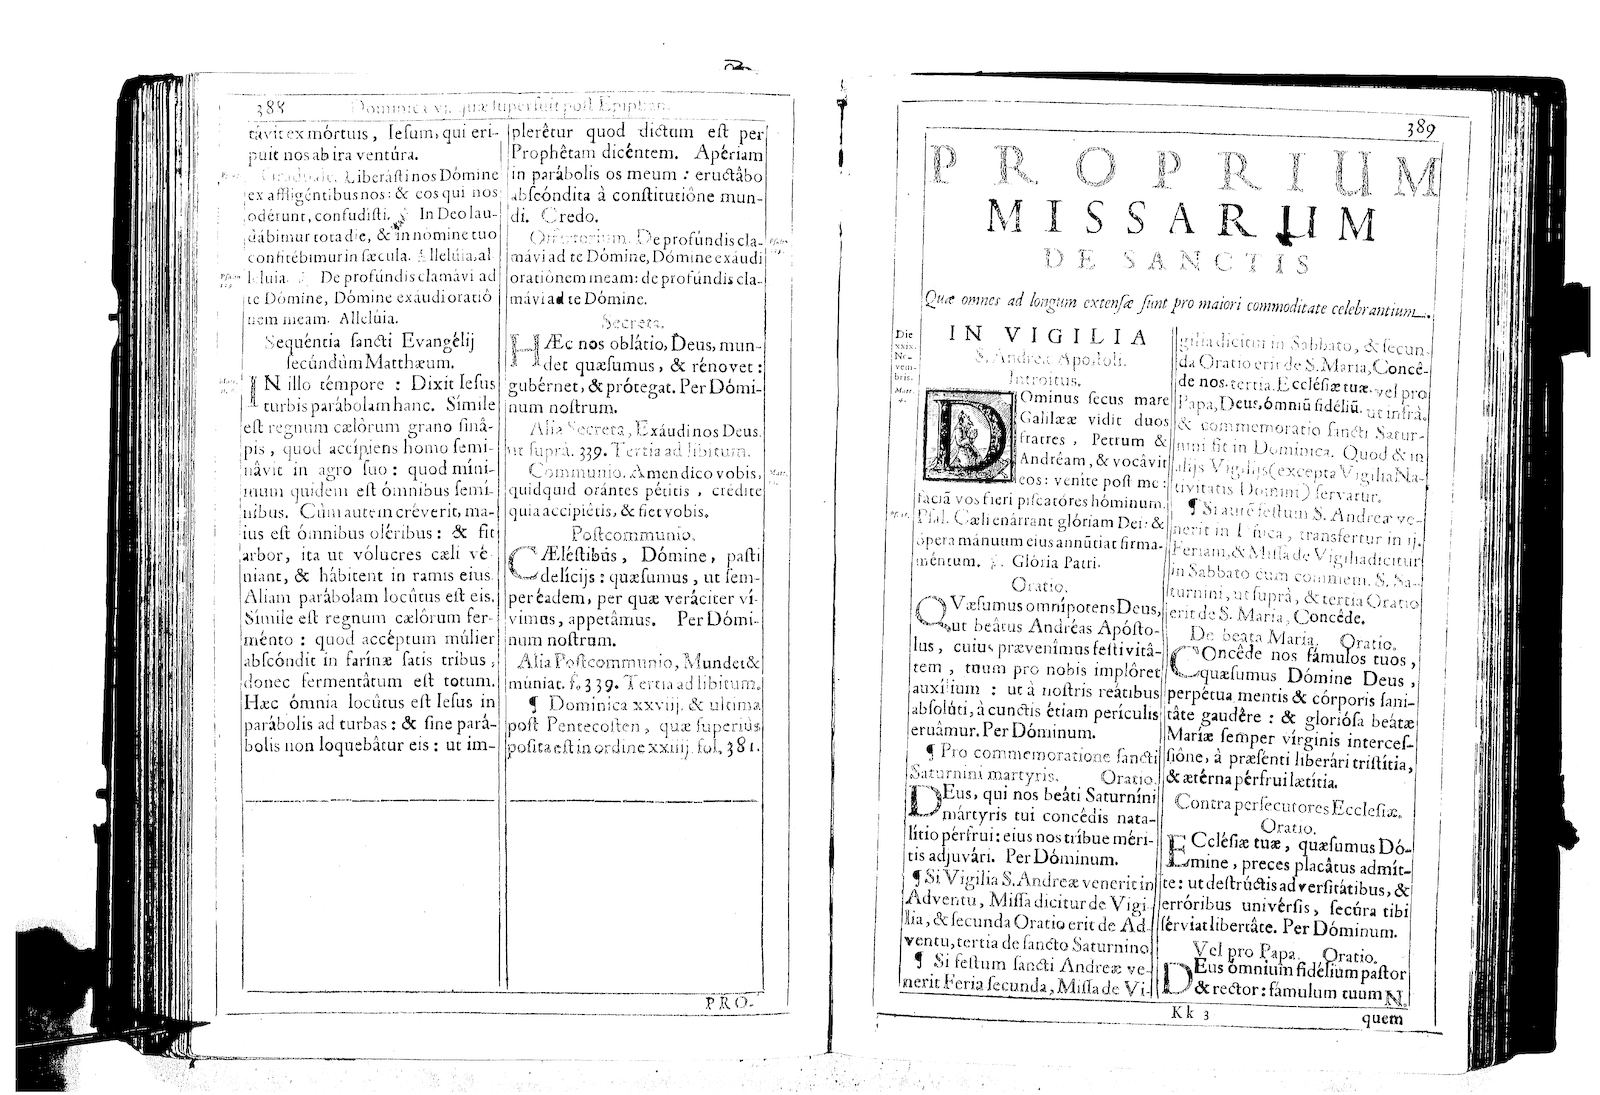 388 Dominica vj. quæ superfuit post Epiphan.
távit ex mórtuis, Iesum, qui eri-
puit nos ab ira ventúra.
Graduale. Liberásti nos Dómine
ex affligéntibus nos: & eos qui nos
odérunt, confudísti. ℣. In Deo lau-
dábimur tota die, & in nomine tuo
confitébimur in sæcula. Allelúia, al
leluia. ℣. De profúndis clamávi ad
te Dómine, Dómine exáudi oratiô
nem meam. Allelúia.
Sequéntia sancti Evangélij
secúndùm Matthæum.
IN illo témpore : Dixit Iesus
turbis parábolam hanc. Símile
est regnum cælórum grano sinâ-
pis, quod accípiens homo semi-
nâvit in agro suo : quod míni-
mum quidem est ómnibus semí-
nibus. Cùm autem créverit, ma-
ius est ómnibus oléribus : & fit
arbor, ita ut vólucres cæli vé
niant, & hábitent in ramis eius.
Aliam parábolam locûtus est eis.
Símile est regnum cælôrum fer-
ménto : quod accéptum múlier
abscóndit in farínæ satis tribus,
donec fermentâtum est totum.
Hæc ómnia locûtus est Iesus in
parábolis ad turbas : & sine pará-
bolis non loquebâtur eis : ut im-
plerêtur quod dictum est per
Prophêtam dicéntem. Apériam
in parábolis os meum : eructâbo
abscóndita à constitutiône mun-
di. Credo.
Offertorium. De profúndis cla-
mávi ad te Dómine, Dómine exáudi
oratiônem meam: de profúndis cla-
mávi ad te Dómine.
Secreta.
HÆc nos oblátio, Deus, mun-
det quæsumus, & rénovet :
gubérnet, & prótegat. Per Dómi-
num nostrum.
Alia Secreta, Exáudi nos Deus.
ut suprà. 339. Tertia ad libitum.
Communio. Amen dico vobis,
quidquid orántes pétitis, crédite
quia accipiétis, & fiet vobis.
Postcommunio.
CÆléstibus, Dómine, pasti
delícijs : quæsumus, ut sem-
per éadem, per quæ veráciter ví-
vimus, appetâmus. Per Dómi-
num nostrum.
Alia Postcommunio, Mundet &
múniat. f. 339. Tertia ad libitum.
¶ Dominica xxviij. & ultima
post Pentecosten, quæ superiùs
posita est in ordine xxiiij. fol. 381.
PRO-
389
PROPRIUM
MISSARUM
DE SANCTIS
Quæ omnes ad longum extensæ sunt pro maiori commoditate celebrantium.
Die
xxix.
No-
vem-
bris.
IN VIGILIA
S. Andreæ Apostoli.
Introitus.
DOminus secus mare
Galilææ vidit duos
fratres, Petrum &
Andréam, & vocâvit
eos: venite post me:
faciã vos fieri piscatóres hóminum.
Psal. Cæli enárrant glóriam Dei: &
ópera mánuum eius annũtiat firma-
méntum. ℣. Glória Patri.
Oratio.
QVæsumus omnípotens Deus,
ut beâtus Andréas Apósto-
lus, cuius prævenímus festivitâ-
tem, tuum pro nobis implôret
auxílium : ut à nostris reátibus
absolúti, à cunctis étiam perículis
eruâmur. Per Dóminum.
¶ Pro commemoratione sancti
Saturnini martyris. Oratio.
DEus, qui nos beáti Saturníni
mártyris tui concédis nata-
lítio pérfrui: eius nos tríbue méri-
tis adjuvári. Per Dóminum.
¶ Si Vigilia S. Andreæ venerit in
Adventu, Missa dicitur de Vigi
lia, & secunda Oratio erit de Ad-
ventu, tertia de sancto Saturnino
¶ Si festum sancti Andreæ ve-
nerit Feria secunda, Missa de Vi-
gilia dicitur in Sabbato, & secun-
da Oratio erit de S. Maria, Concé-
de nos. tertia. Ecclésiæ tuæ. vel pro
Papa, Deus, ómniũ fidéliũ. ut infrà.
& commemoratio sancti Satur-
nini fit in Dominica. Quod & in
alijs Vigiliis (excepta Vigilia Na-
tivitatis Domini) servatur.
¶ Si autẽ festum S. Andreæ ve-
nerit in feria, transfertur in ij.
Feriam, & Missa de Vigilia dicitur
in Sabbato cum commem. S. Sa-
turnini, ut suprà, & tertia Oratio
erit de S. Maria, Concéde.
De beata Maria. Oratio.
COncéde nos fámulos tuos,
quæsumus Dómine Deus,
perpétua mentis & córporis sani-
tâte gaudêre : & gloriósa beátæ
Maríæ semper vírginis interces-
siône, à præsénti liberári tristítia,
& ætérna pérfrui lætítia.
Contra persecutores Ecclesiæ.
Oratio.
ECclésiæ tuæ, quæsumus Dó-
mine, preces placâtus admít-
te : ut destrúctis adversitátibus, &
erróribus univérsis, secúra tibi
sérviat libertâte. Per Dóminum.
Vel pro Papa. Oratio.
DEus ómnium fidélium pastor
& rector : fámulum tuum N.
Kk 3
quem